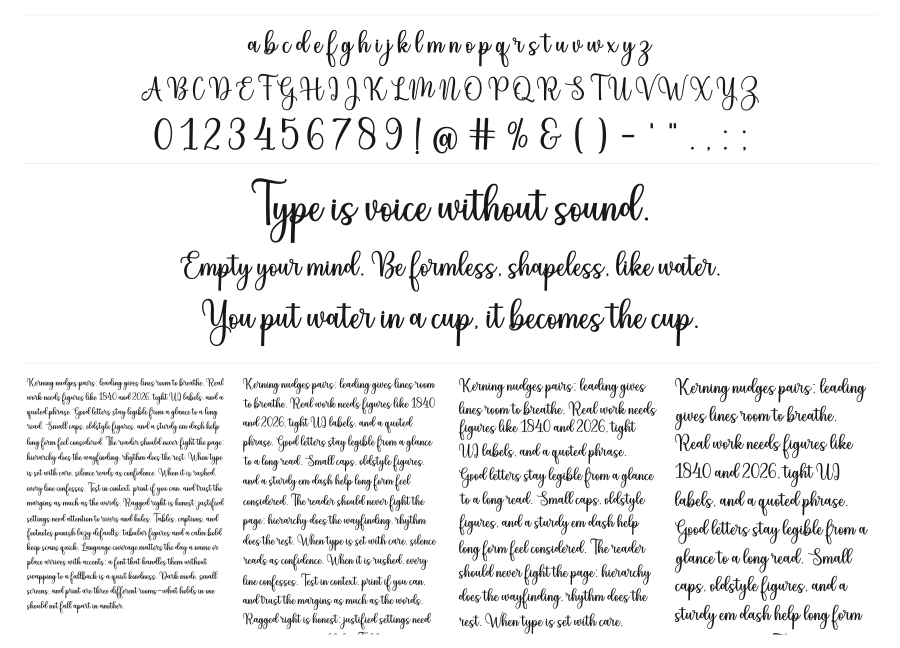 a b c d e f g h i j k l m n o p q r s t u v w x y z
A B C D E F G H I J K L M N O P Q R S T U V W X Y Z
0 1 2 3 4 5 6 7 8 9 ! @ # % & ( ) - ' " . , : ;
Type is voice without sound.
Empty your mind. Be formless, shapeless, like water.
You put water in a cup, it becomes the cup.
Kerning nudges pairs; leading gives lines room to breathe. Real
work needs figures like 1840 and 2026, tight UI labels, and a
quoted phrase. Good letters stay legible from a glance to a long
read. Small caps, oldstyle figures, and a sturdy em dash help
long form feel considered. The reader should never fight the page;
hierarchy does the wayfinding, rhythm does the rest. When type
is set with care, silence reads as confidence. When it is rushed,
every line confesses. Test in context, print if you can, and trust the
margins as much as the words. Ragged right is honest; justified
settings need attention to rivers and holes. Tables, captions, and
footnotes punish lazy defaults; tabular figures and a calm bold
keep scans quick. Language coverage matters the day a name or
place arrives with accents; a font that handles them without
swapping to a fallback is a quiet kindness. Dark mode, small
screens, and print are three different rooms—what holds in one
should not fall apart in another.
Kerning nudges pairs; leading gives lines room
to breathe. Real work needs figures like 1840
and 2026, tight UI labels, and a quoted
phrase. Good letters stay legible from a glance
to a long read. Small caps, oldstyle figures,
and a sturdy em dash help long form feel
considered. The reader should never fight the
page; hierarchy does the wayfinding, rhythm
does the rest. When type is set with care, silence
reads as confidence. When it is rushed, every
line confesses. Test in context, print if you can,
and trust the margins as much as the words.
Ragged right is honest; justified settings need
Kerning nudges pairs; leading gives
lines room to breathe. Real work needs
figures like 1840 and 2026, tight
UI labels, and a quoted phrase.
Good letters stay legible from a glance
to a long read. Small caps, oldstyle
figures, and a sturdy em dash help
long form feel considered. The reader
should never fight the page; hierarchy
does the wayfinding, rhythm does the
rest. When type is set with care,
Kerning nudges pairs; leading
gives lines room to breathe.
Real work needs figures like
1840 and 2026, tight UI
labels, and a quoted phrase.
Good letters stay legible from a
glance to a long read. Small
caps, oldstyle figures, and a
sturdy em dash help long form